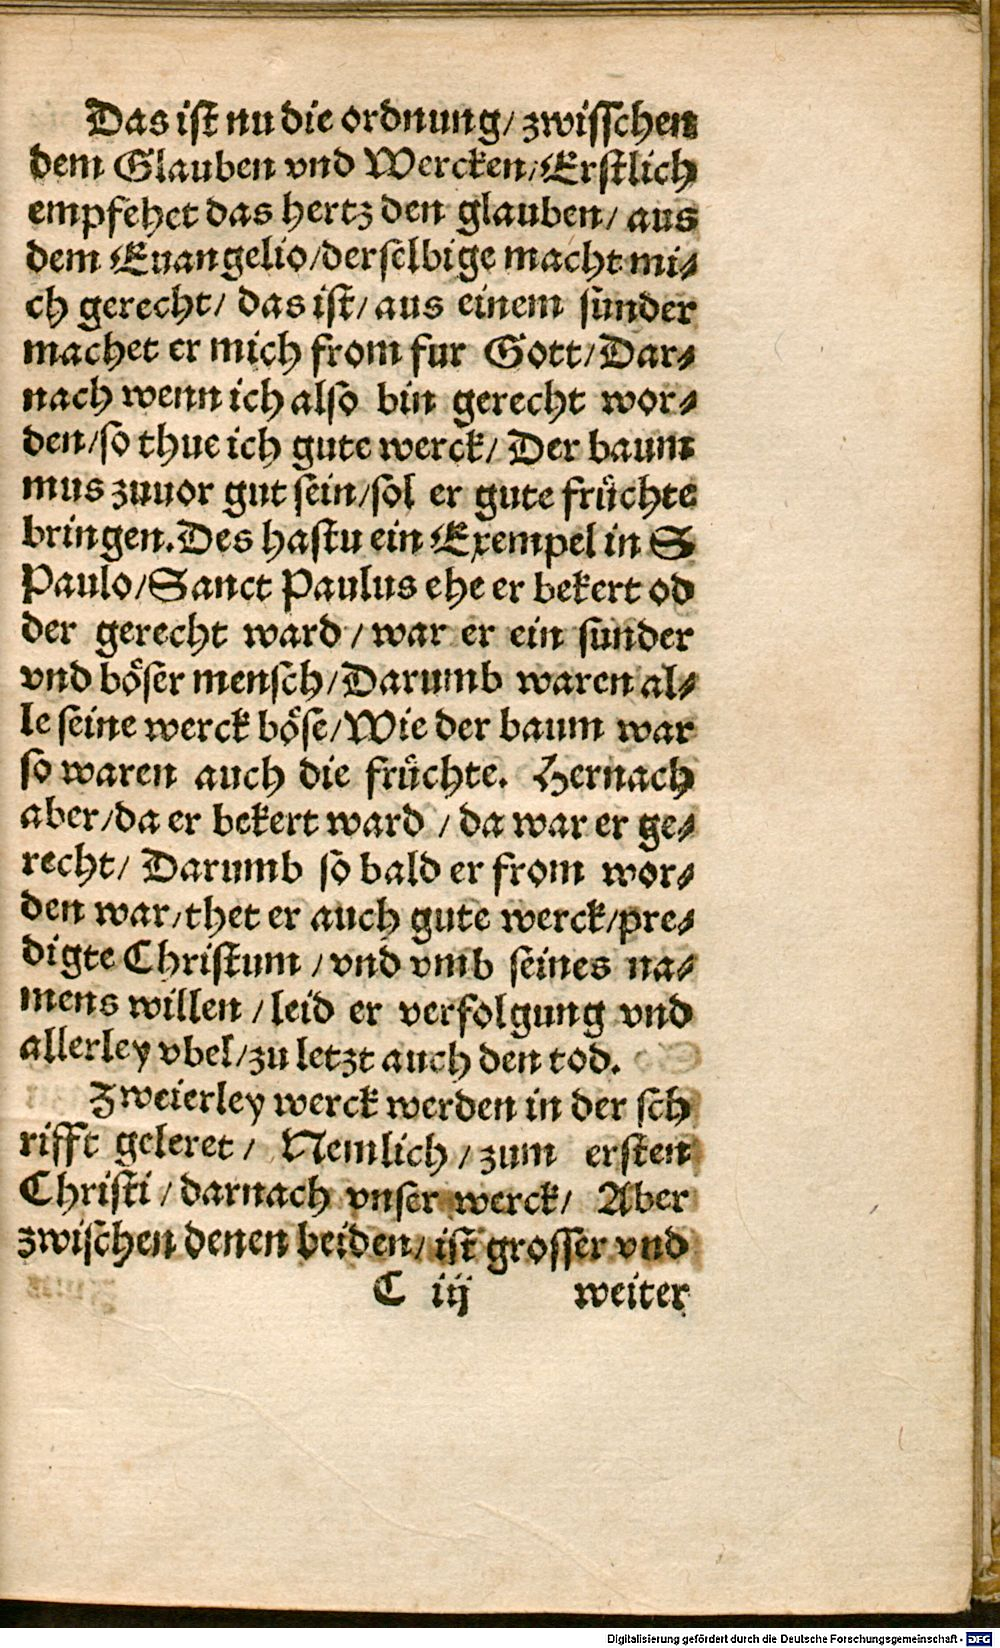 Das ist nu die ordnung/ zwisschen
dem Glauben vnd Wercken/Erstlich
empfehet das hertz den glauben/ aus
dem Euangelio/derselbige macht mi⸗
ch gerecht/ das ist/ aus einem sunder
machet er mich from fur Gott/Dar⸗
nach wenn ich also bin gerecht wor⸗
den/so thue ich gute werck/ Der baum
mus zuuor gut sein/sol er gute früchte
bringen.Des hastu ein Exempel in S
Paulo/Sanct Paulus ehe er bekert od
der gerecht ward/war er ein sunder
vnd böser mensch/Darumb waren al⸗
le seine werck böse/Wie der baum war
so waren auch die früchte. Hernach
aber/da er bekert ward / da war er ge⸗
recht/ Darumb so bald er from wor⸗
den war/thet er auch gute werck/pre⸗
digte Christum /vnd vmb seines na⸗
mens willen /leid er verfolgung vnd
allerley vbel/zu letzt auch den tod.
Zweierley werck werden in der sch
rifft geleret/ Nemlich/zum ersten
Christi/darnach vnser werck/ Aber
zwischen denen beiden/ist grosser vnd
C iij weiter
Digitalisierung gefördert durch die Deutsche Forschungsgemeinschaft - DFG